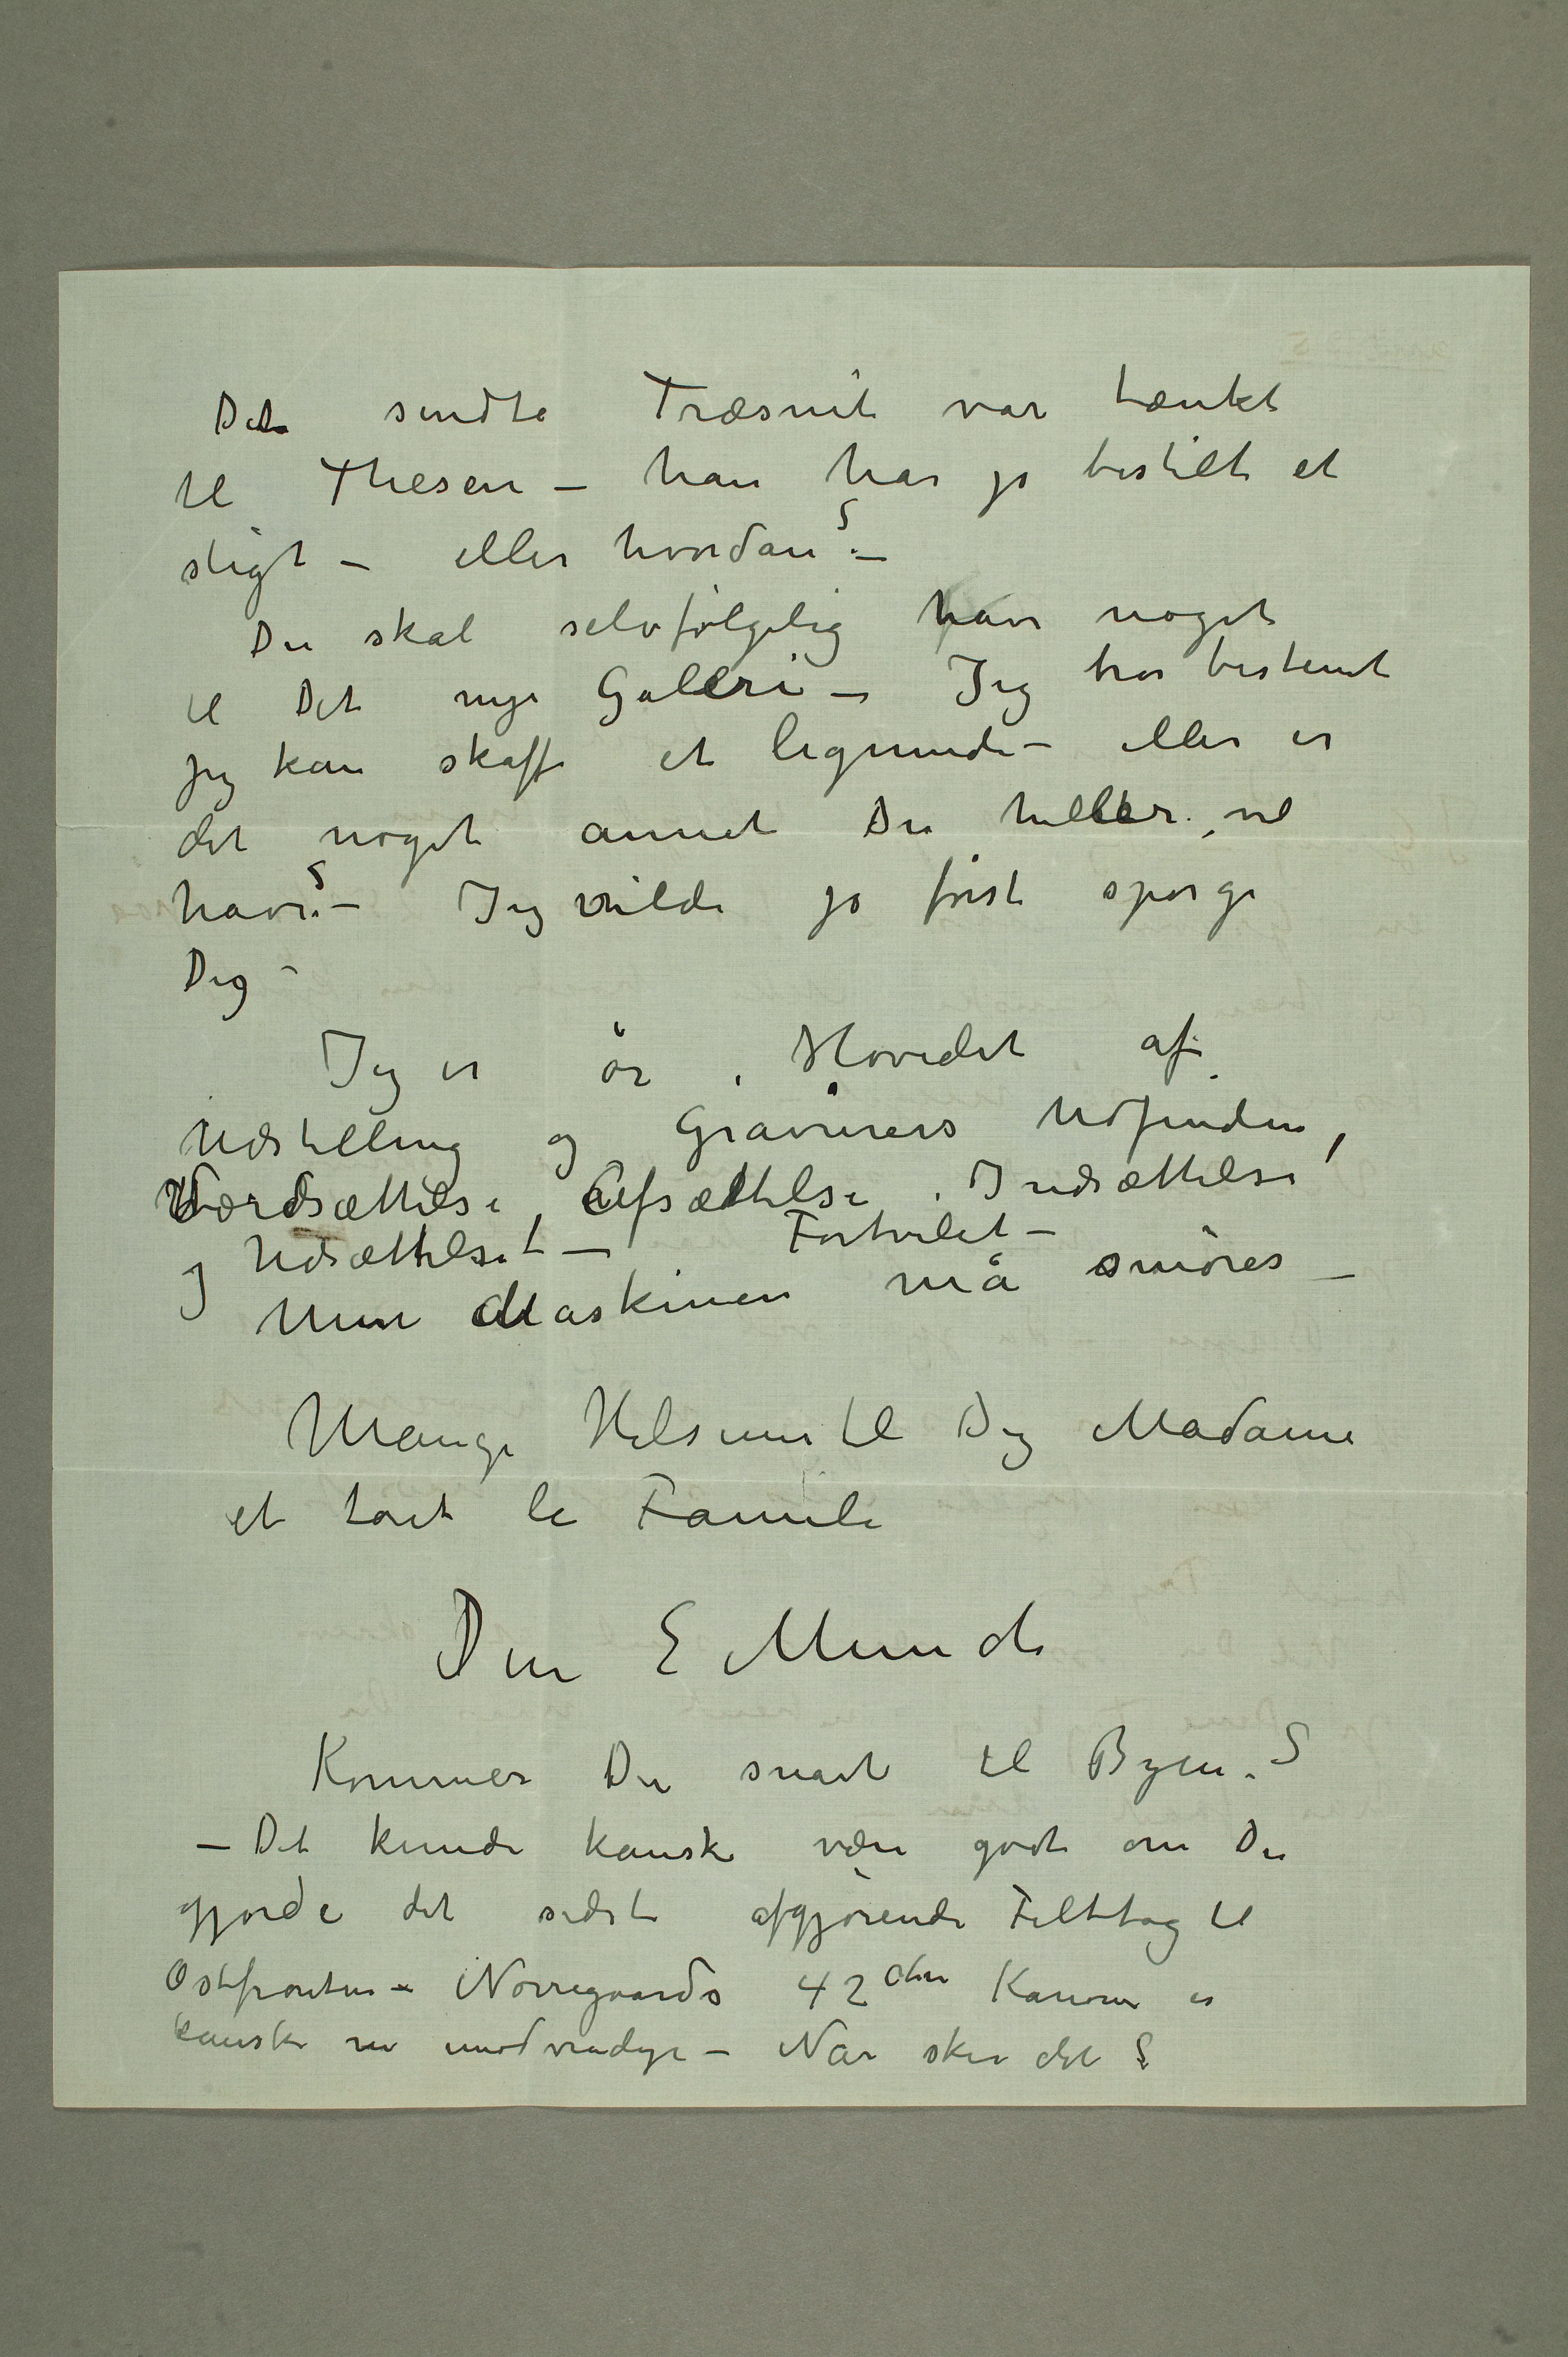 Det sendte Træsnit var tænkt
til Thesen – han har jo bestilt et
sligt – eller hvordan? –
Du skal selvfølgelig have noget
til Det nye Galleri – Jeg tror bestemt
jeg kan skaffe et lignende – eller er
det noget annet Du heller vil
have? – Jeg vilde jo først spørge
Dig –
Jeg er ør i Hovedet af
Udstilling og Gravurers Udfinden,
Værdsættelse, Afsættelse, Indsættelse
og Udsættelse! – Fortvilet –
Men Maskinen må smøres –
Mange Hilsener til Dig Madame
et tout le Famile
Din E Munch
Kommer Du snart til Byen. ?
– Det kunde kanske være godt om Du
gjorde det sidste afgjørende Felttog til
Østfronten – Nørregaards 42 ctm Kanoner er
kanske nu unødvendige – Når sker det ?